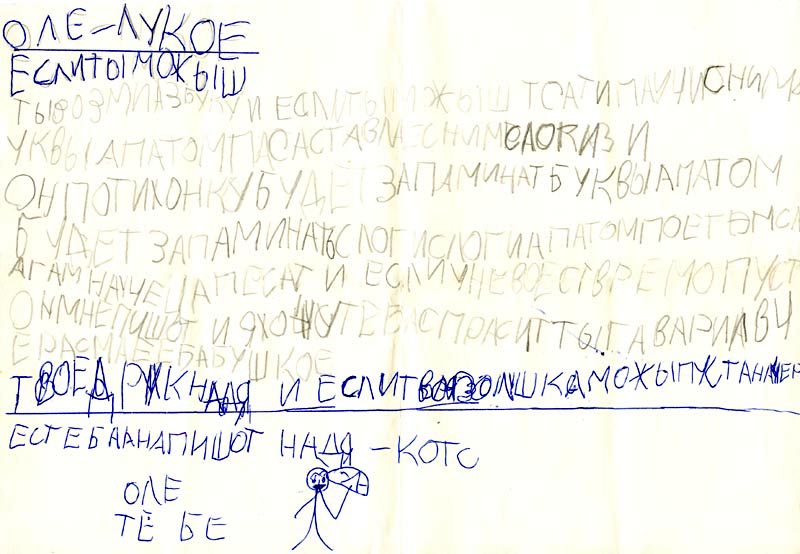 ОЛЕ-ЛУКОЕ
ЕСЛИТЫМОЖЫШ
ТЫВОЗМИАЗБУКУ И ЕСЛИТЫМОЖЫШ ТО НИМ
УКВЫАПАТОМПАСАСТАВЛАЕСНИМСЛОК ИЗ И
ОНПОТИХОНКУБУДЕТЗАПАМИНАТБУКВЫАПАТОМ
БУДЕТЗАПАМИНАТЬСЛОГИСЛОГИАПАТОМПОЕТ
АГАМНАУЧЕЦАПЕСАТ И ЕСЛИУНЕВОЕСТВРЕМОПУСТ
ОНМНЕПИШОТ И ЯХОЧУТЕБАСПРАСИТТЫГАВАРИЛВЧ
ЕРАСМАЕЕБАБУШКОЕ
ТВОЕДРУК НАДЯ И ЕСЛИТ МОЖЫПУСТАН
ЕСТЕБААНАПИШОТ НАДЯ-КОТС
ОЛЕ
ТЁБЕ